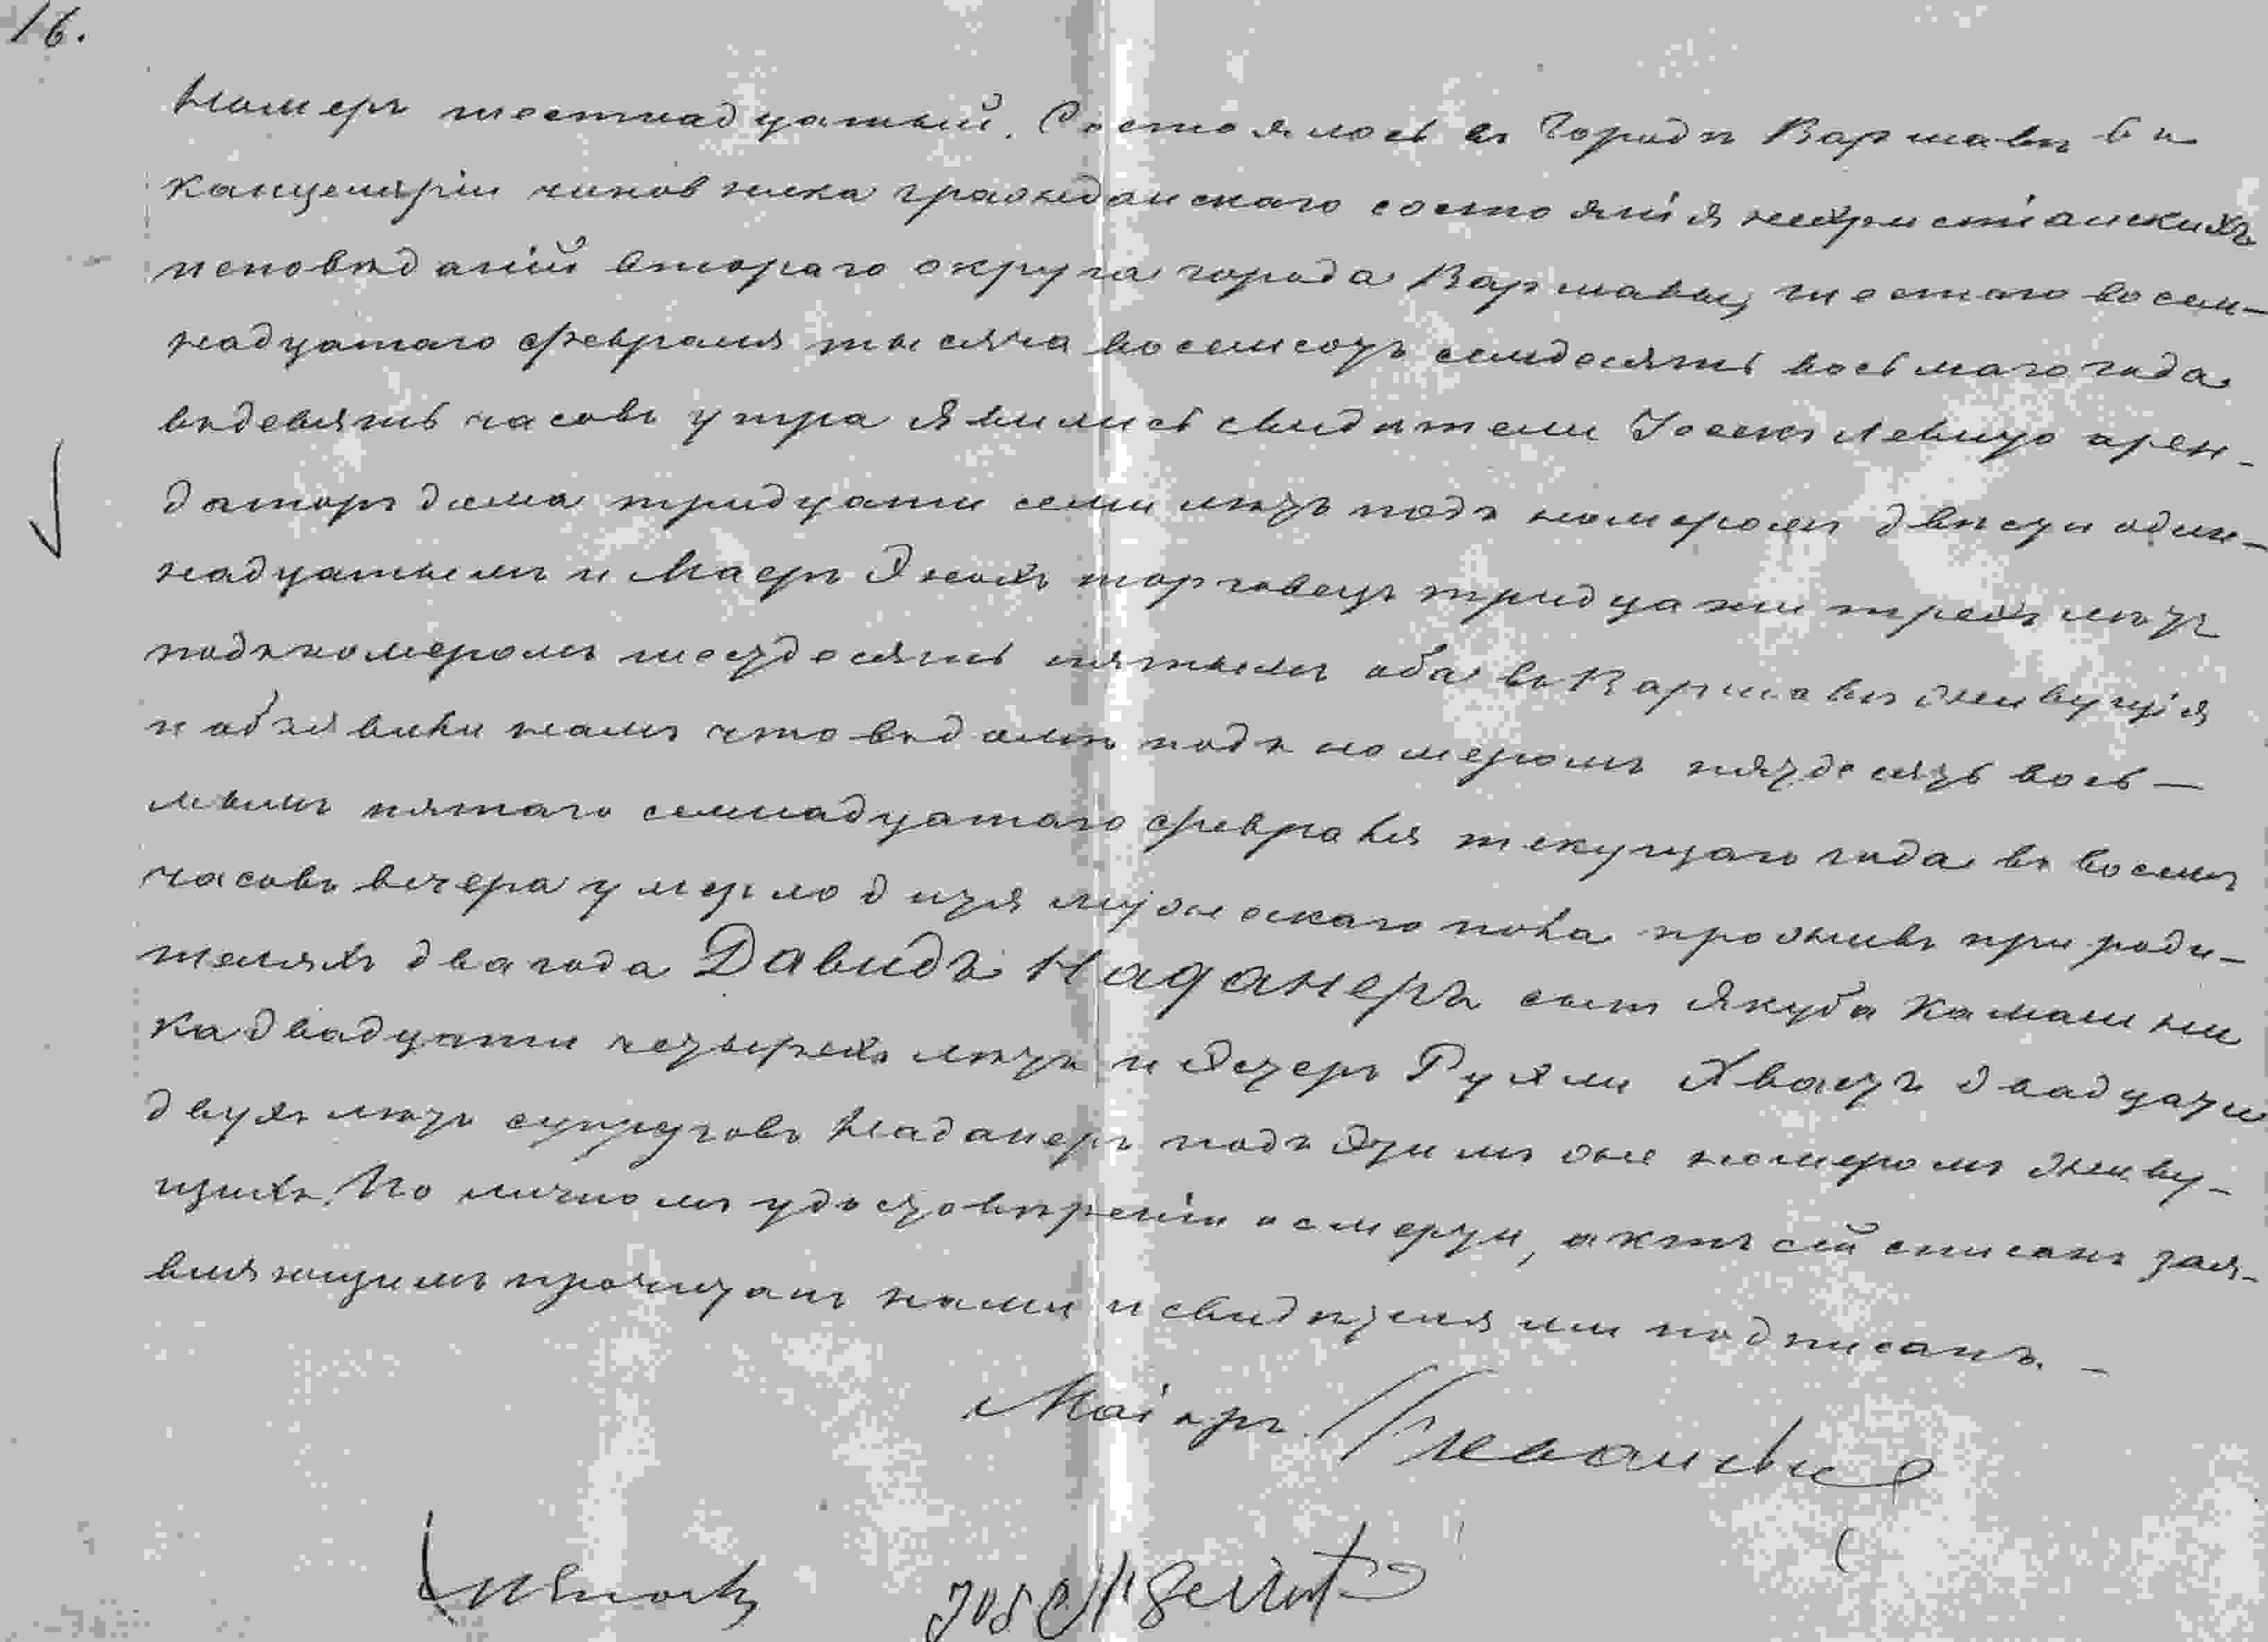 16.
Номеръ шестнадцатый. Состоялось въ Городѣ Варшавѣ въ
Канцеляріи чиновника гражданскаго состоянія нехристіанскихъ
исповѣданій втораго округа города Варшавы, шестаго восем-
надцатаго февраля тысяча восемсотъ семдесятъ восьмаго года
въ девять часовъ утра явились свидѣтели Іосекъ Левито арен-
даторъ дома тридцати семи лѣтъ подъ номеромъ двѣсти один-
надцатымъ и Маеръ Энохъ торговецъ тридцати трехъ лѣтъ
подъ номеромъ шестдесятъ пятымъ оба въ Варшавѣ живущія
и объявили намъ что въ домѣ подъ номеромъ пятдесятъ вось-
мымъ пятаго семнадцатаго февраля текущаго года въ восемь
часовъ вечера умерло дитя мужескаго пола проживъ при роди-
теляхъ два года Давидъ Наданеръ сынъ Якуба Камашни
ка двадцати четырехъ лѣтъ и Эстеръ Рухли Хватъ двадцати
двухъ лѣтъ супруговъ Наданеръ подъ этимъ же номеромъ живу-
щихъ. По личномъ удостовѣреніи о смерти, актъ сей списанъ зая-
вляющимъ прочитанъ нами и свидѣтелями подписанъ. -
Маіоръ